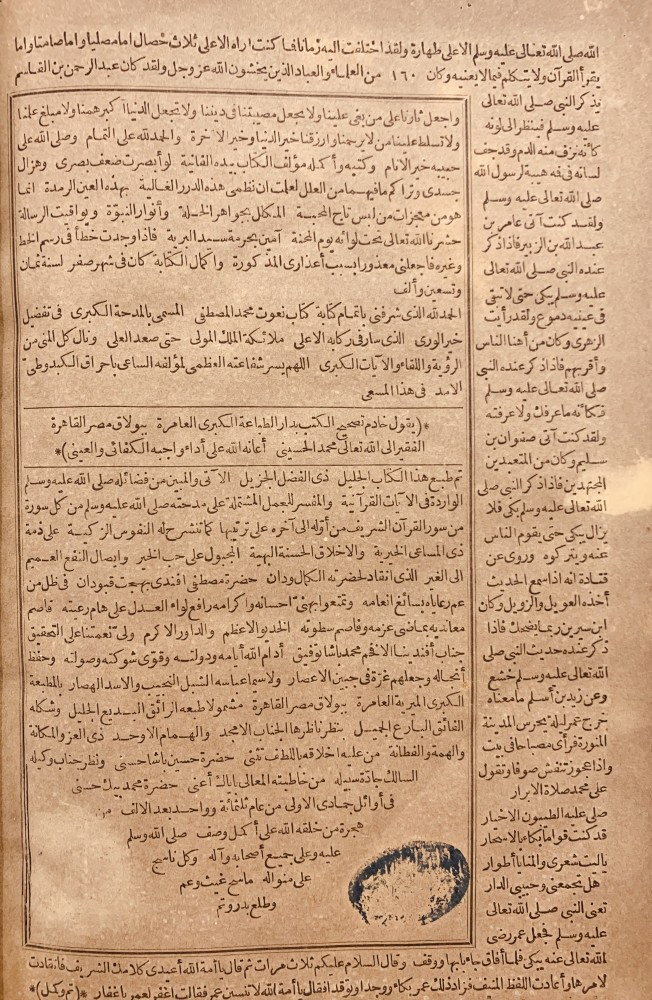 الله صلى الله تعالى عليه وسلم الاعلى طهارة ولقد اختلفت اليه زمانا فما كنت اراه الاعلى ثلاث خصال اما مصليا واما صامتا واما
يقرأ القرآن ولا يتكلم فيما لا يعنيه وكان ١٦٠ من العلماء والعباد الذين يخشون الله عز وجل ولقد كان عبد الرحمن بن القاسم
يذكر النبي صلى الله تعالى
عليه وسلم فينظر الى لونه
كأنه نزف منه الدم وقد جف
لسانه في فه هيبة لرسول الله
صلى الله تعالى عليه وسلم
ولقد كنت آتى عامر بن
عبد الله بن الزبير فاذا ذكر
عنده النبي صلى الله تعالى
عليه وسلم بكى حتى لا تبقى
في عينيه دموع ولقد رأيت
الزهرى وكان من أهنا الناس
وأقربهم فاذا ذكر عنده النبي
صلى الله تعالى عليه وسلم
فكأنه ما عرفك ولا عرفته
ولقد كنت آتى صفوان بن
سليم وكان من المتعبدين
المجتهدين فاذا ذكر النبي صلى
الله تعالى عليه وسلم بكى فلا
يزال يبكى حتى يقوم الناس
عنه ويتركوه وروى عن
قتادة انه اذا سمع الحديث
أخذه العويل والزويل وكان
ابن سيرين ربما يضحك فاذا
ذكر عنده حديث النبي صلى
الله تعالى عليه وسلم خشع
وعن زيد بن أسلم ما معناه
خرج عمر ليلة يحرس المدينة
المنورة فرأى مصباحا في بيت
واذا عجوز تنفش صوفا وتقول
على محمد صلاة الابرار
صلى عليه الطيبون الاخيار
قد كنت قواما بكاء بالاسحار
ياليت شعرى والمنايا أطوار
هل تجمعنى وحبيبى الدار
تعنى النبي صلى الله تعالى
عليه وسلم فجعل عمر رضى
واجعل ثأرنا على من بغى علينا ولا تجعل مصيبتنا في ديننا ولا تجعل الدنيا أكبر همنا ولا مبلغ علمنا
ولا تسلط علينا من لا يرحمنا وارزقنا خير الدنيا وخير الآخرة والحمد لله على التمام وصلى الله على
حبيبه خير الانام وكتبه وأكمله مؤلف الكتاب بيده الفانية لو أبصرت ضعف بصرى وهزال
جسدى وتراكم ما فيهما من العلل لعلمت ان نظمى هذه الدرر الغالية بهذه العين الرمدة انما
هو من معجزات من لبس تاج المحبة المكلل بجواهر الخلة وأنوار النبوة ويواقيت الرسالة
حشرنا الله تعالى تحت لوائه يوم المحنة آمين بحرمة سيد البرية فاذا وجدت خطأ في رسم الخط
وغيره فاجعلنى معذورا بسبب أعذارى المذكورة واكمال الكتابة كان في شهر صفر لسنة ثمان
وتسعين وألف
الحمد لله الذى شرفنى باتمام كتابة كتاب نعوت محمد المصطفى المسمى بالمدحة الكبرى في تفضيل
خير الورى الذى سار في ركابه الاعلى ملائكة الملك المولى حتى صعد العلى ونال كل المنى من
الرؤية واللقاء والآيات الكبرى اللهم يسر شفاعته العظمى لمؤلفه الساعى باحراق الكبد وطىّ
الامد في هذا المسعى
*(يقول خادم تصحيح الكتب بدار الطباعة الكبرى العامرة ببولاق مصر القاهرة
الفقير الى الله تعالى محمد الحسينى أعانه الله على أداء واجبه الكفائى والعينى)*
تم طبع هذا الكتاب الجليل ذى الفضل الجزيل الآتى والمبين من فضائله صلى الله عليه وسلم
الواردة في الآيات القرآنية والمفسر للجمل المشتملة على مدحته صلى الله عليه وسلم من كل سورة
من سور القرآن الشريف من أوله الى آخره على ترتيبها كما تنشرح له النفوس الزكية على ذمة
ذى المساعى الخيرية والاخلاق الحسنة البهية المجبول على حب الخير وايصال النفع العميم
الى الغير الذى انقاد لحضرته الكمال ودان حضرة مصطفى افندى بهجت قبودان في ظل من
عم رعاياه بسائغ انعامه وتمتعوا بهنئ احسانه واكرامه رافع لواء العدل على هام رعيته قاصم
معانديه بماضى عزمه وقاصم سطوته الخديو الاعظم والداور الاكرم ولى نعمتنا على التحقيق
جناب أفندينا الافخم محمد باشا توفيق أدام الله أيامه ودولته وقوى شوكته وصولته وحفظ
أنجاله وجعلهم غرة في جبين الاعصار ولا سيما عباسه الشبل النجيب والاسد الهصار بالمطبعة
الكبرى الميرية العامرة ببولاق مصر القاهرة مشمولا طبعه الرائق البديع الجليل وشكله
الفائق البارع الجميل بنظر ناظرها الجناب الامجد والهمام الاوحد ذى العز والمكانة
والهمة والفطانة من عليه اخلاقه باللطف تثنى حضرة حسين باشا حسنى ونظر جناب وكيله
السالك جادة سبيله من خاطبته المعالى باياك أعنى حضرة محمد بيك حسنى
في أوائل جمادى الاولى من عام ثلثمائة وواحد بعد الالف من
هجرة من خلقه الله على أكمل وصف صلى الله وسلم
عليه وعلى جميع أصحابه وآله وكل ناسج
على منواله ما سح غيث وعم
وطلع بدر وتم
الله تعالى عنه يبكى فلما أفاق جاء بابها ووقف وقال السلام عليكم ثلاث مرات ثم قال يا أمة الله أعيدى كلامك الشريف فانقادت
لامرها وأعادت اللفظ المنيف فزاد ذلك عمر بكاء ووجدا وتوقد افقال يا أمة الله لا تنسين عمر فقالت اغفر لعمر يا غفار *(تم وكمل)*